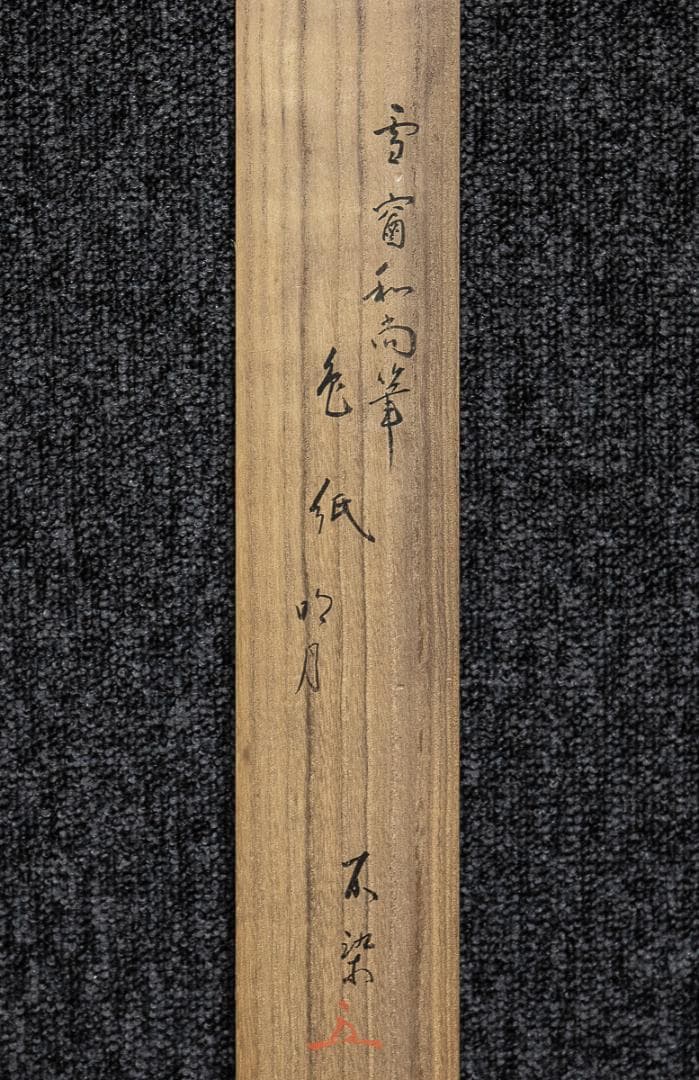 雪窗和尚筆
色紙 明月
不染